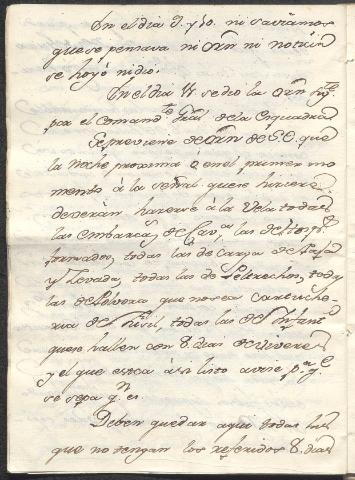 En el dia 9. y 10. ni saviamos
que se pensava ni Orn ni noticia
se hoyó ni dio.
En el dia 11 se dio la Orn sigte
por el Comandte Gral de la Esquadra
Se previene de Orn de S.E. que
la Noche proxima ó en el primer mo
mento á la señal que se hiciere
deverán hacerse á la Vela todas
las embarcas de Cava, las de Hospl
forrados, todas las de carga de Paja
y Zevada, todas las de Peltrechos, todas
las de Polvora que no sea Cartuche
ria de Fusil, todas las de Infante
que se hallen con 8. dias de viveres
y el que esté á sí listo avise pa qe
se sepa qn es.
Deben quedar aqui todas las
que no tengan los referidos 8. dias